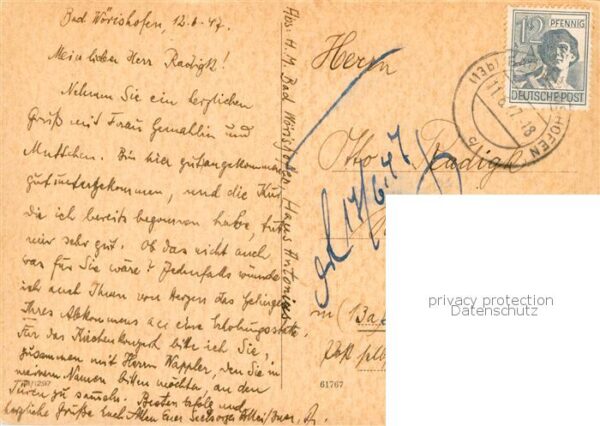 Bad Wörishofen, 12.6.47.
Mein lieber Herr Radigk!
Nehmen Sie ein herzlichen
Gruß mit Frau Gemahlin und
Muttchen. Bin hier gut angekommen
gut untergekommen, und die Kur
die ich bereits begonnen habe, tut
mir sehr gut. Ob das nicht auch
was für Sie wäre? Jedenfalls wünsche
ich auch Ihnen von Herzen das Gelingen
Ihres Abkommens an eine Erholungsstätte.
Für das Kirchenkonzert bitte ich Sie,
zusammen mit Herrn Wappler, den Sie in
meinem Namen bitten möchten, an den
Türen zu sammeln. Besten Erfolg und
herzliche Grüße Euch Allen Euer
Abs: H. M. Bad Wörishofen, Haus Antonius
Herrn
Otto Radigk
17/6.47
in
61767
12 PFENNIG
DEUTSCHE POST
(13b)
HOFEN
privacy protection
Datenschutz